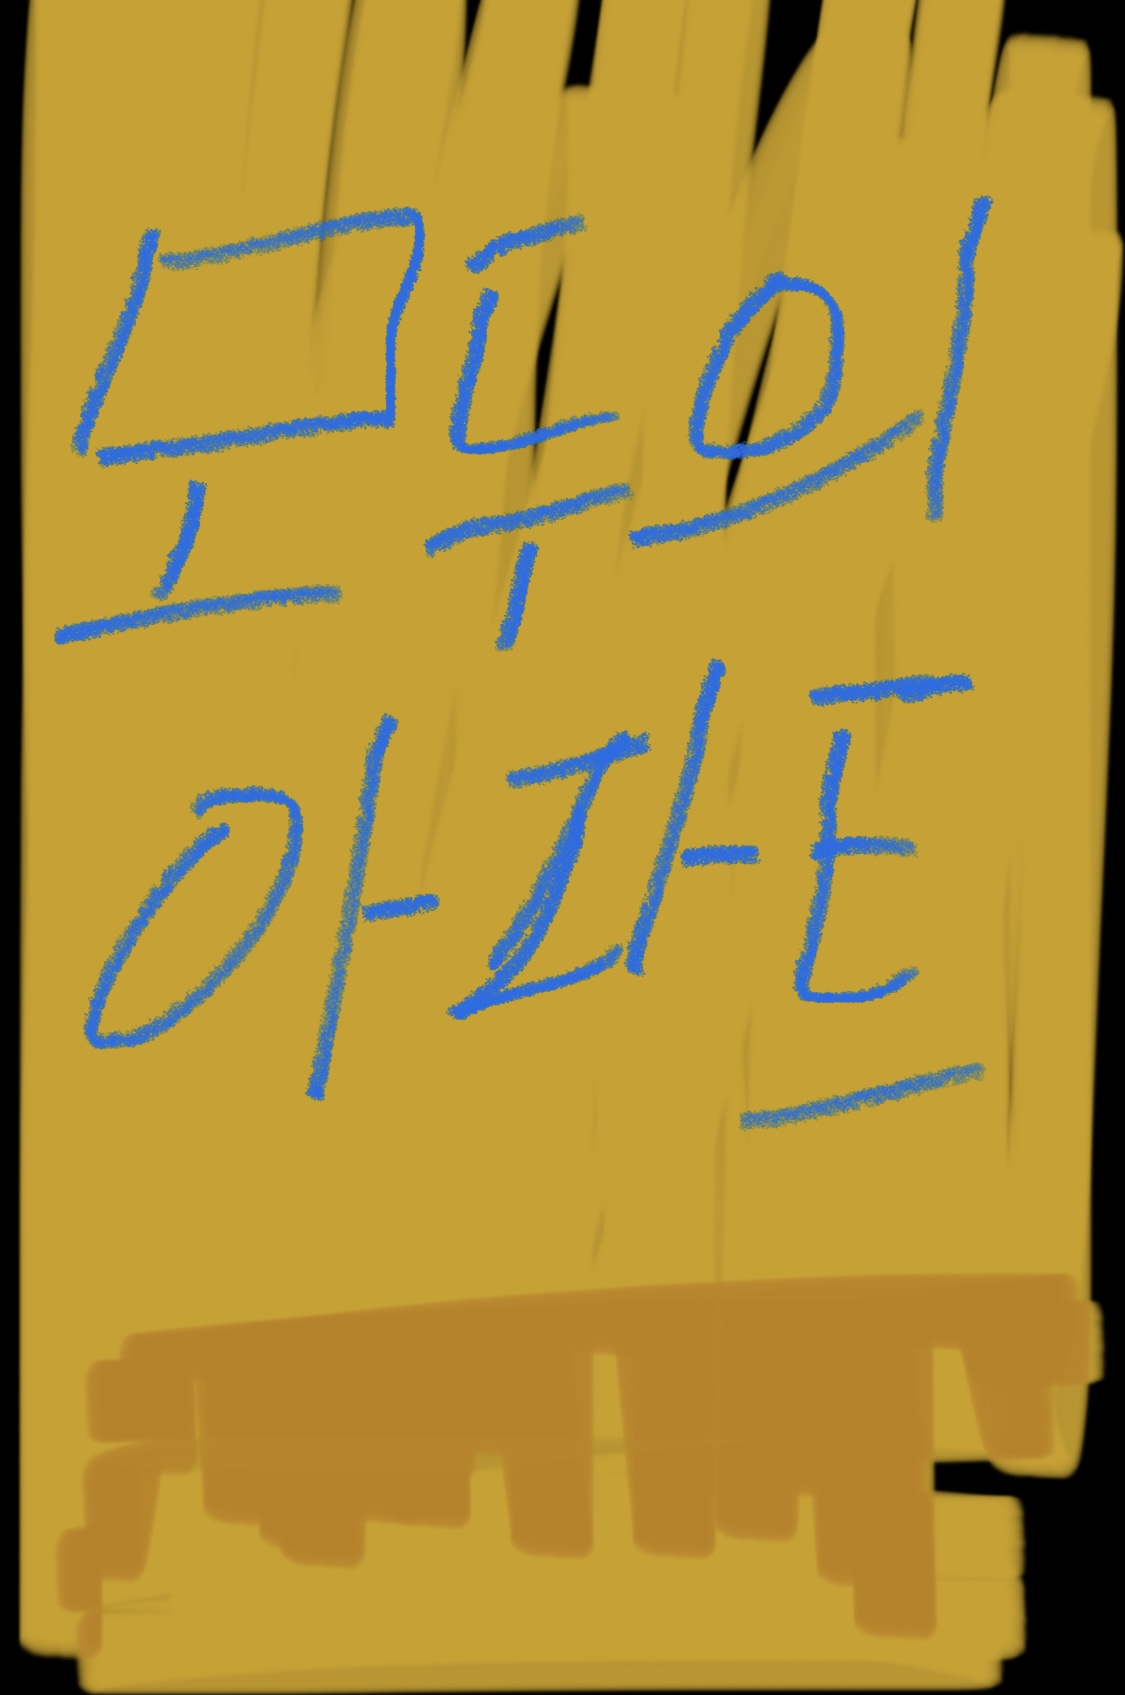 모두의
아파트